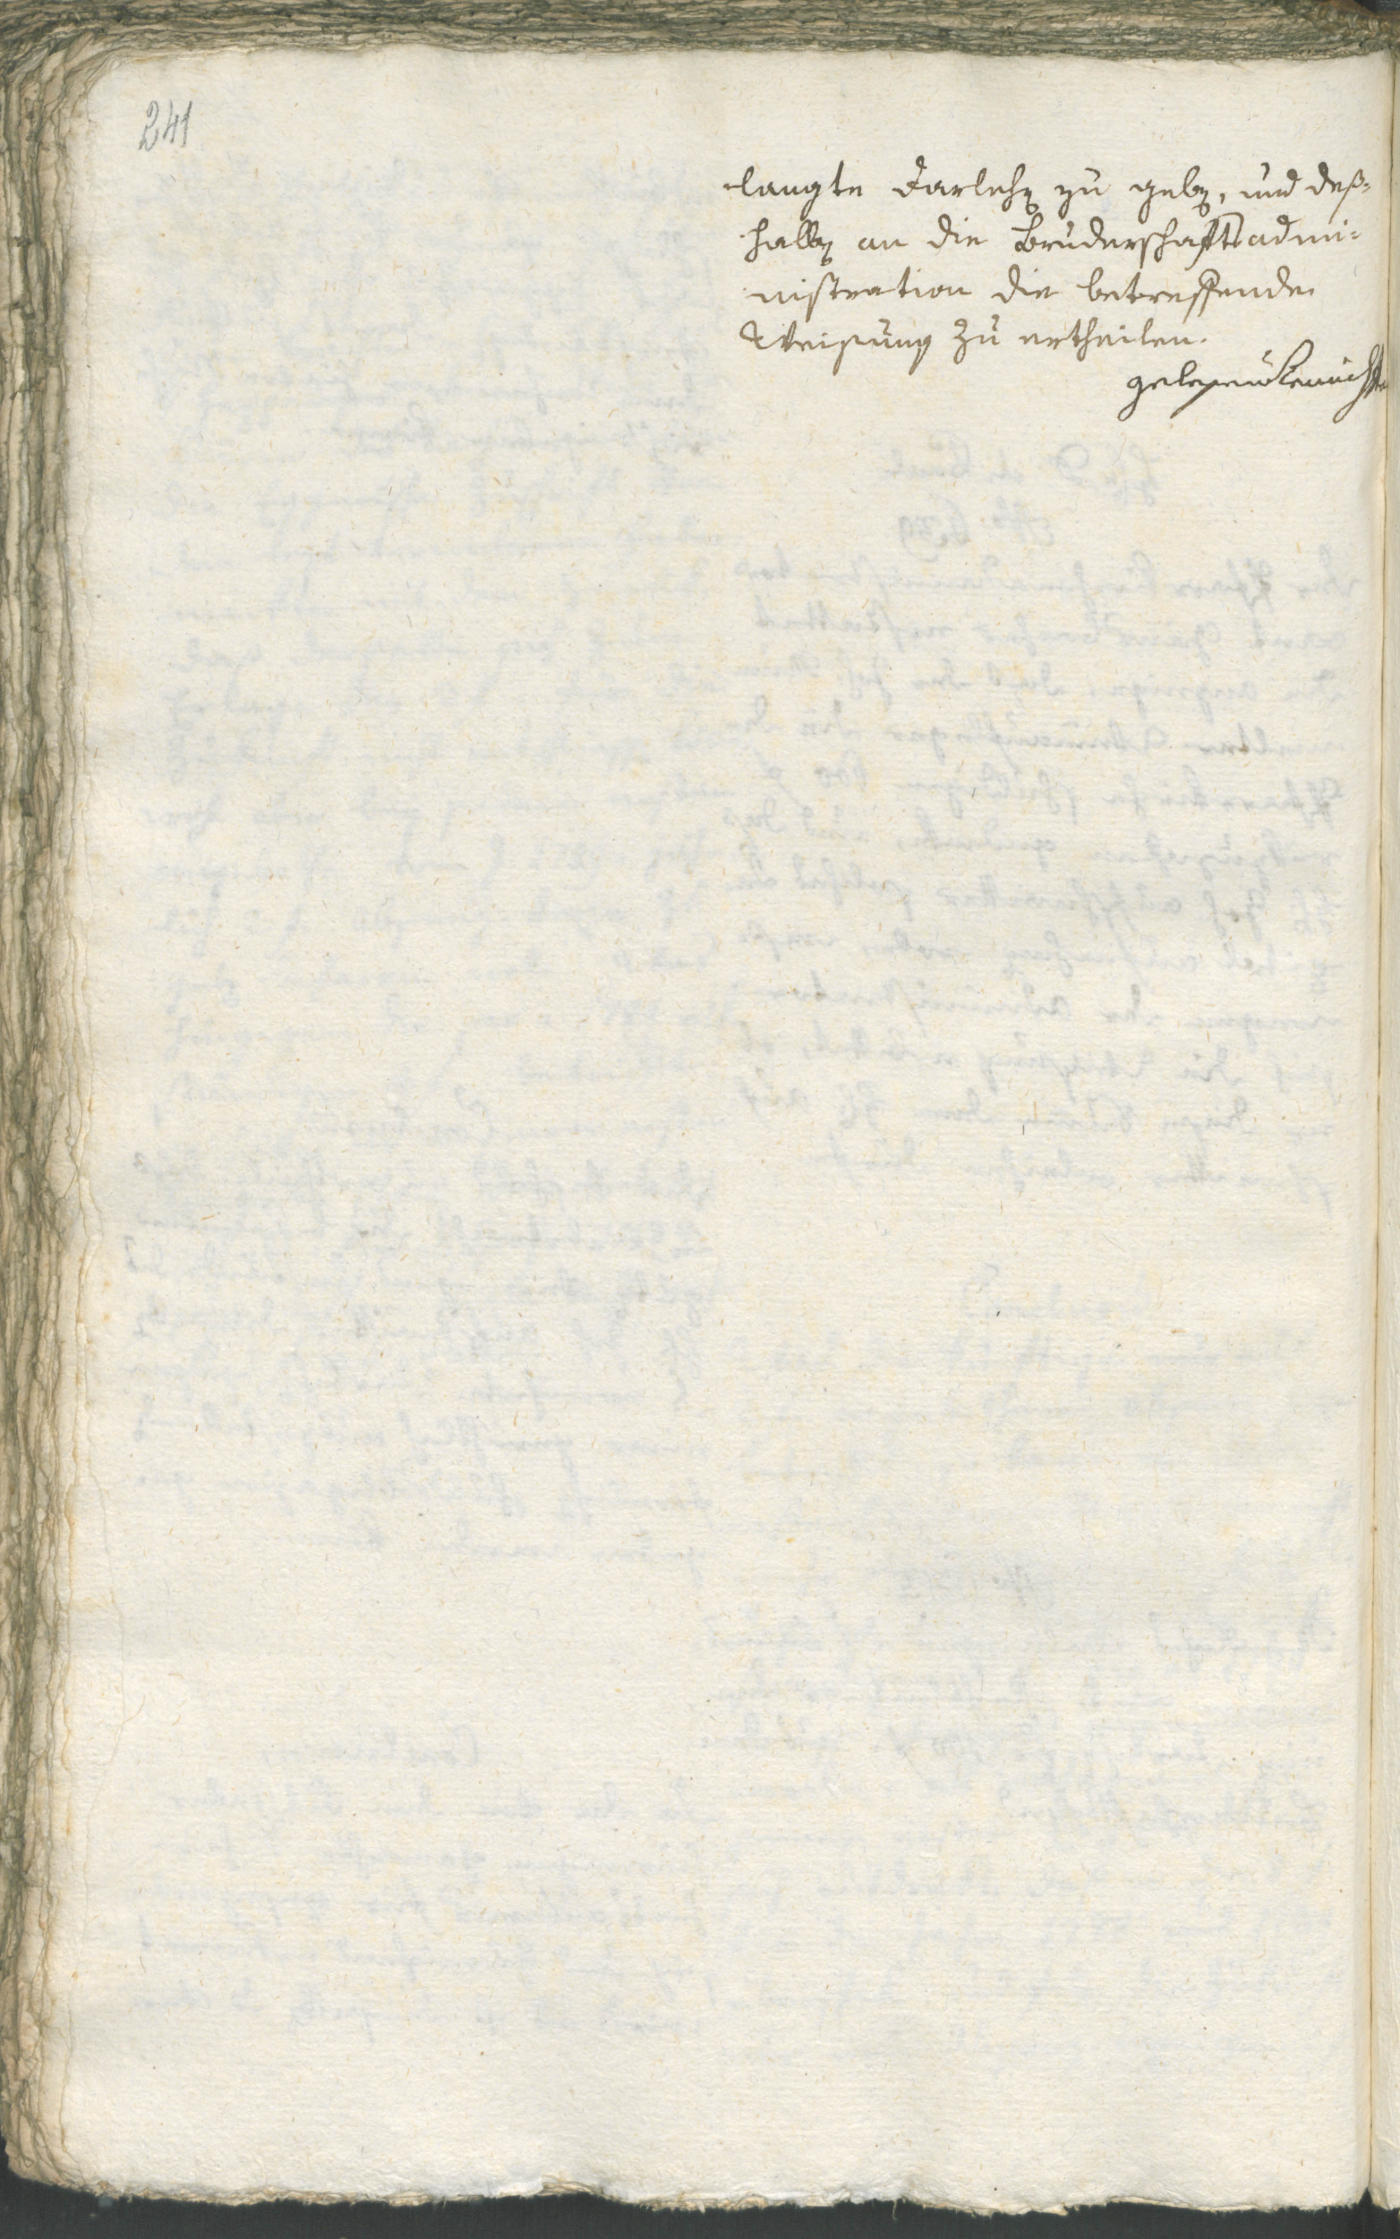 241
langte Darlehen zu geben, und deß-
halben an die Bruderschaftsadmi-
nistration die betreffende
Weisung zu ertheilen.